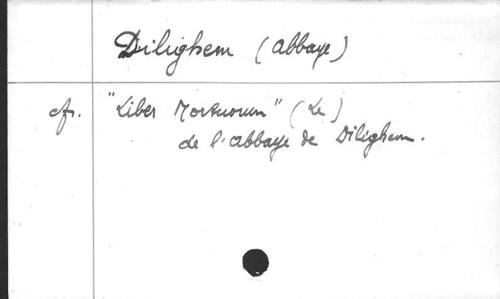 Dilighem (abbaye)
cfr. "Liber Mortuorum" (Le)
de l'abbaye de Dilighem.